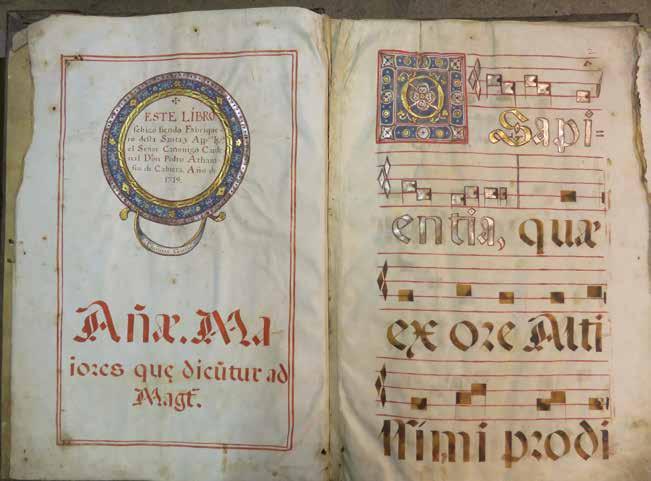 ESTE LIBRO
se hizo siendo Fabrique-
ro desta Santa y App.ca Yg.a
el Señor Canonigo Carde-
nal Don Pedro Athana-
sio de Cabrera. Año de
1719.
Añæ. Ma-
iores quę dicũtur ad
Magt̃.
O Sapi=
entia, quæ
ex ore Alti
ssimi prodi